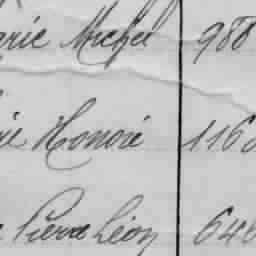 arie Michel 988
ié Honoré 1163
e Pierre Léon 646